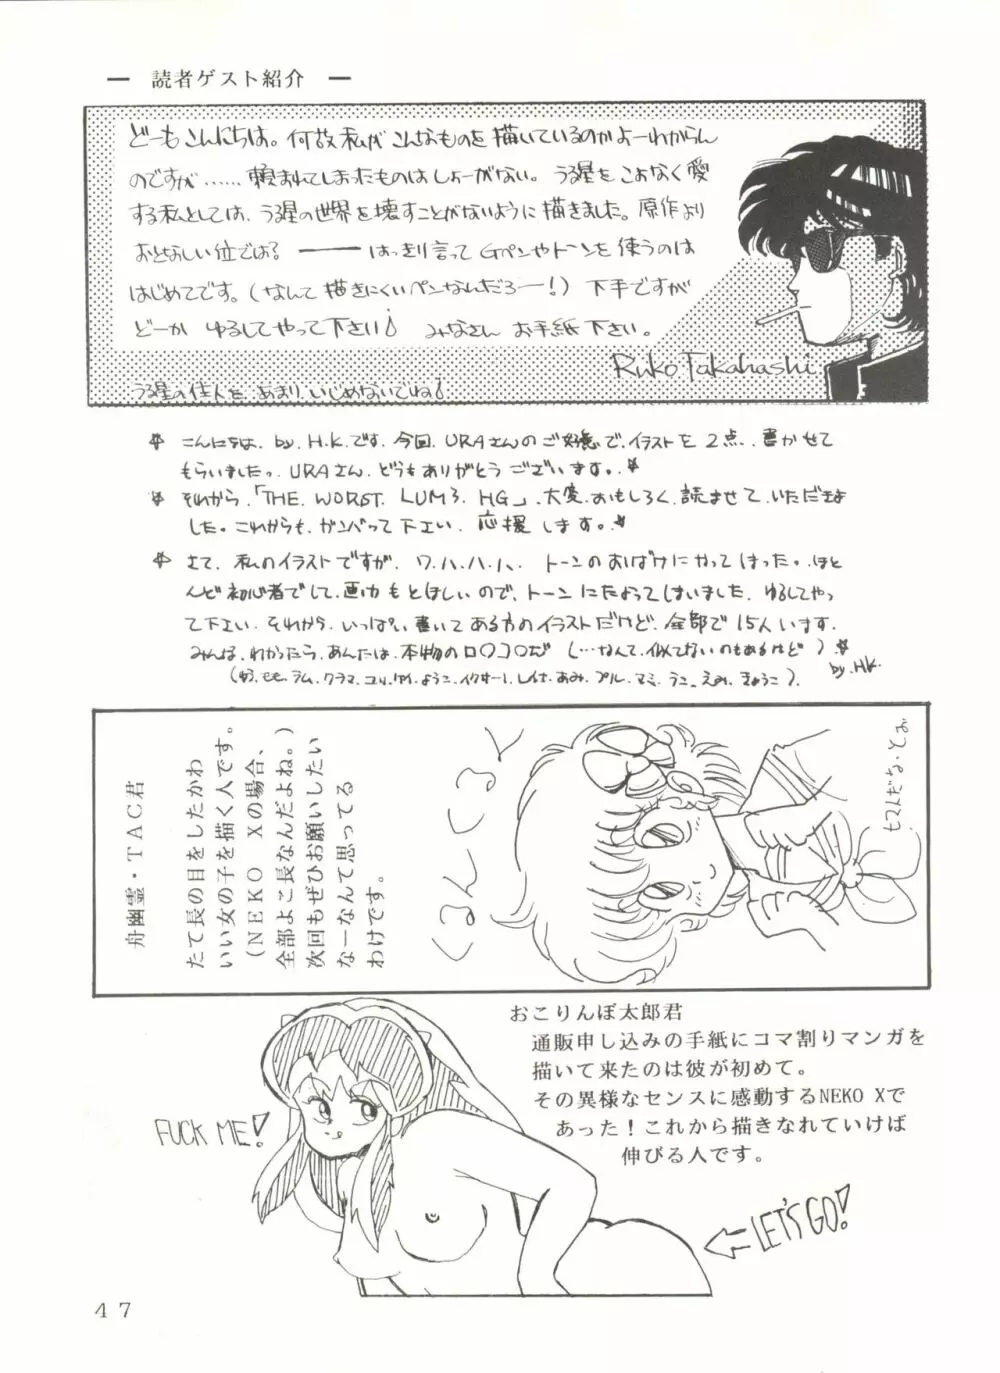 ― 読者ゲスト紹介 ―
どーもこんにちは。何故私がこんなものを描いているのかよーわからん
のですが……頼まれてしまったものはしょーがない。うる星をこよなく愛
する私としては、うる星の世界を壊すことがないように描きました。原作より
おとなしい位では? ―― はっきり言ってGペンやトーンを使うのは
はじめてです。(なんて描きにくいペンなんだろー!) 下手ですが
どーか ゆるしてやって下さい♪ みなさん お手紙下さい。
Ruko Takahashi
うる星の住人を あまり いじめないでね!
☆ こんにちは、by. H.K.です。今回、URAさんのご好意で、イラストを2点、書かせて
もらいました。URAさん、どうもありがとうございます。☆
☆ それから、「THE WORST LUM3 HG」、大変、おもしろく、読ませて、いただきま
した。これからも、ガンバって下さい、応援します。☆
☆ さて、私のイラストですが、ワ、ハ、ハ、ハ、トーンのおばけにやってしまった。ほと
んど初心者でして、画力もとぼしいので、トーンにたよってしまいました、ゆるしてやっ
て下さい。それから、いっぱい書いてある方のイラストだけど、全部で15人います。
みんな、わかったら、あんたは、本物のロ〇コ〇だ (…なんて、似てないのもあるけど)☆
by. H.K.
(ゆう、モモ、ラム、クラマ、ユリ、ゆい、ようこ、イクサー1、レイナ、あみ、プル、マミ、うこ、えみ、きょうこ).
舟幽霊・TAC君
たて長の目をしたかわ
いい女の子を描く人です。
(NEKO Xの場合、
全部よこ長なんだよね。)
次回もぜひお願いしたい
なーなんて思ってる
わけです。
くるんくるんっ
おこりんぼ太郎君
通販申し込みの手紙にコマ割りマンガを
描いて来たのは彼が初めて。
その異様なセンスに感動するNEKO Xで
あった！これから描きなれていけば
伸びる人です。
FUCK ME!
LET'S GO!
47